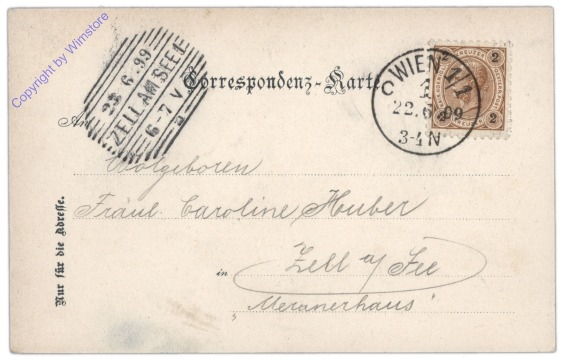 Copyright by Wimstore
23.6.99
ZELL AM SEE 1
6-7 V
Correspondenz-Karte.
C WIEN 1/1
1
22.6.99
3-4 N
2 KREUZER 2
2 2
An
Wolgeboren
Fräul. Caroline Huber
in Zell a/ See
„Meranerhaus“
Nur für die Adresse.